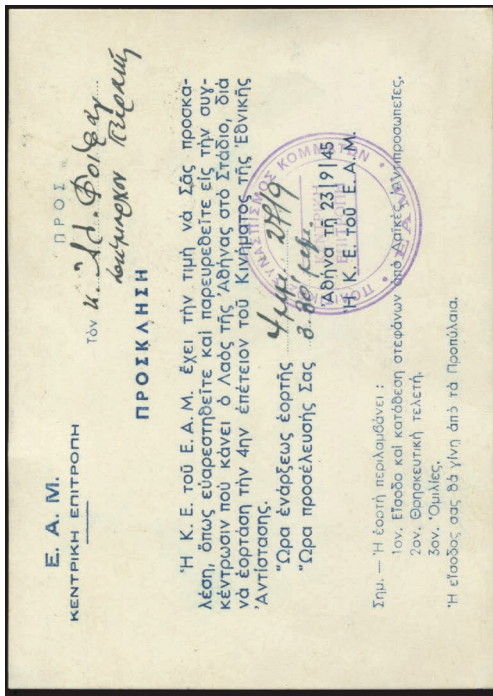 Ε. Α. Μ.
ΚΕΝΤΡΙΚΗ ΕΠΙΤΡΟΠΗ
ΠΡΟΣ
Τόν κ.
Δήμαρχον Πειραιῶς
ΠΡΟΣΚΛΗΣΗ
Ἡ Κ. Ε. τοῦ Ε. Α. Μ. ἔχει τήν τιμή νά Σᾶς προσκα-
λέση, ὅπως εὐαρεστηθεῖτε καί παρευρεθεῖτε εἰς τήν συγ-
κέντρωσιν πού κάνει ὁ Λαός τῆς Ἀθήνας στό Στάδιο, διά
νά ἑορτάση τήν 4ην ἐπέτειον τοῦ Κινήματος τῆς Ἐθνικῆς
Ἀντίστασης.
Ὥρα ἐνάρξεως ἑορτῆς 4 μμ. 27/9
Ὥρα προσέλευσής Σας 3.30 μμ.
Ἀθήνα τῇ 23|9|45
Ἡ Κ. Ε. τοῦ Ε. Α. Μ.
ΣΥΝΑΣΠΙΣΜΟΣ ΚΟΜΜΑΤΩΝ
Ε Α Μ
Σημ. — Ἡ ἑορτή περιλαμβάνει :
1ον. Εἴσοδο καί κατάθεση στεφάνων ἀπό Λαϊκές Ἀντιπροσωπεῖες.
2ον. Θρησκευτική τελετή.
3ον. Ὁμιλίες.
Ἡ εἴσοδος σας θά γίνη ἀπό τά Προπύλαια.